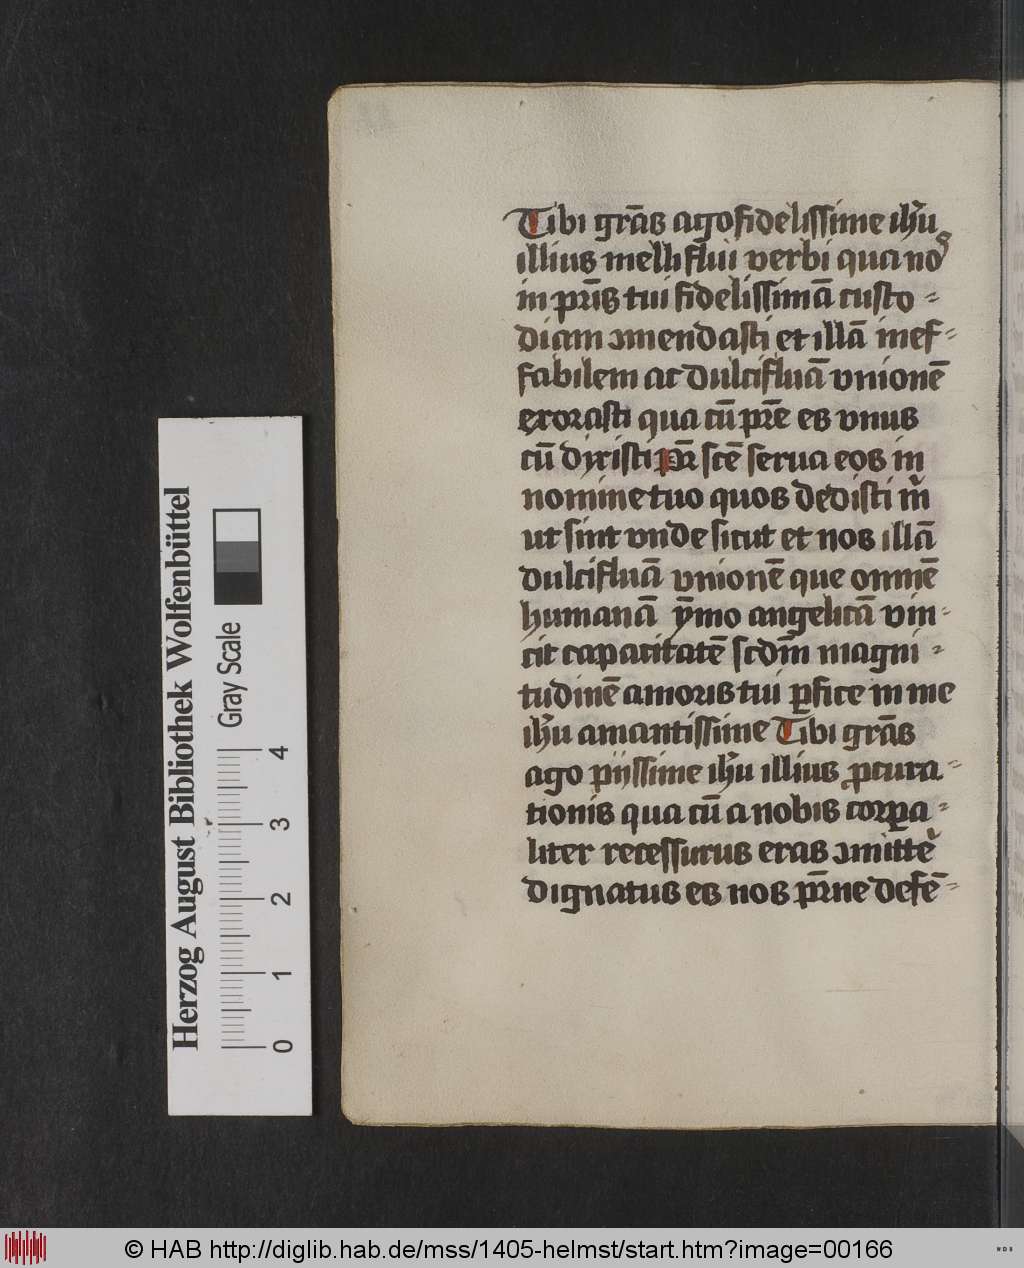 Tibi grās ago fidelissime ihu̅
illius melliflui verbi qua nos
in pr̄is tui fidelissimā custo=
diam ꝯmendasti et illā inef=
fabilem ac dulcifluā vnionē
exorasti qua cū pr̄e es vnus
cū dixisti Pr̄ scē serua eos in
nomine tuo quos dedisti m̄
ut sint vnde sicut et nos illā
dulcifluā vnionē que omnē
humanā ȳmo angelicā vin=
cit capacitatē scdm̄ magni=
tudinē amoris tui ꝑfice in me
ihu̅ amantissime Tibi grās
ago piissime ihu̅ illius ꝓcura=
tionis qua cū a nobis corꝑa=
liter recessurus eras ꝯmitte᷑
dignatus es nos pr̄ne defē=
Herzog August Bibliothek Wolfenbüttel
Gray Scale
0 1 2 3 4
© HAB http://diglib.hab.de/mss/1405-helmst/start.htm?image=00166